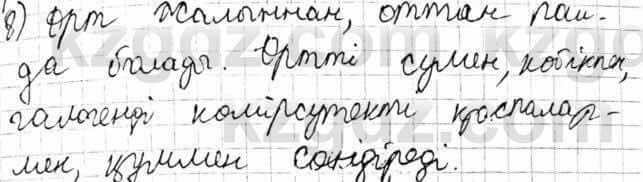 8) Өрт жалыннан, оттан пай-
да болады. Өртті сумен, көбікпен,
галогенді көмірсутекті қоспалар-
мен, құммен сөндіреді.